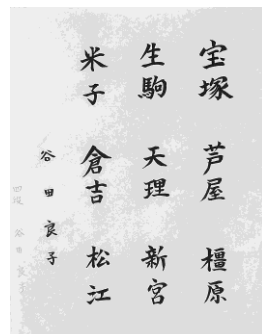 宝塚 芦屋 橿原
生駒 天理 新宮
米子 倉吉 松江
谷田良子